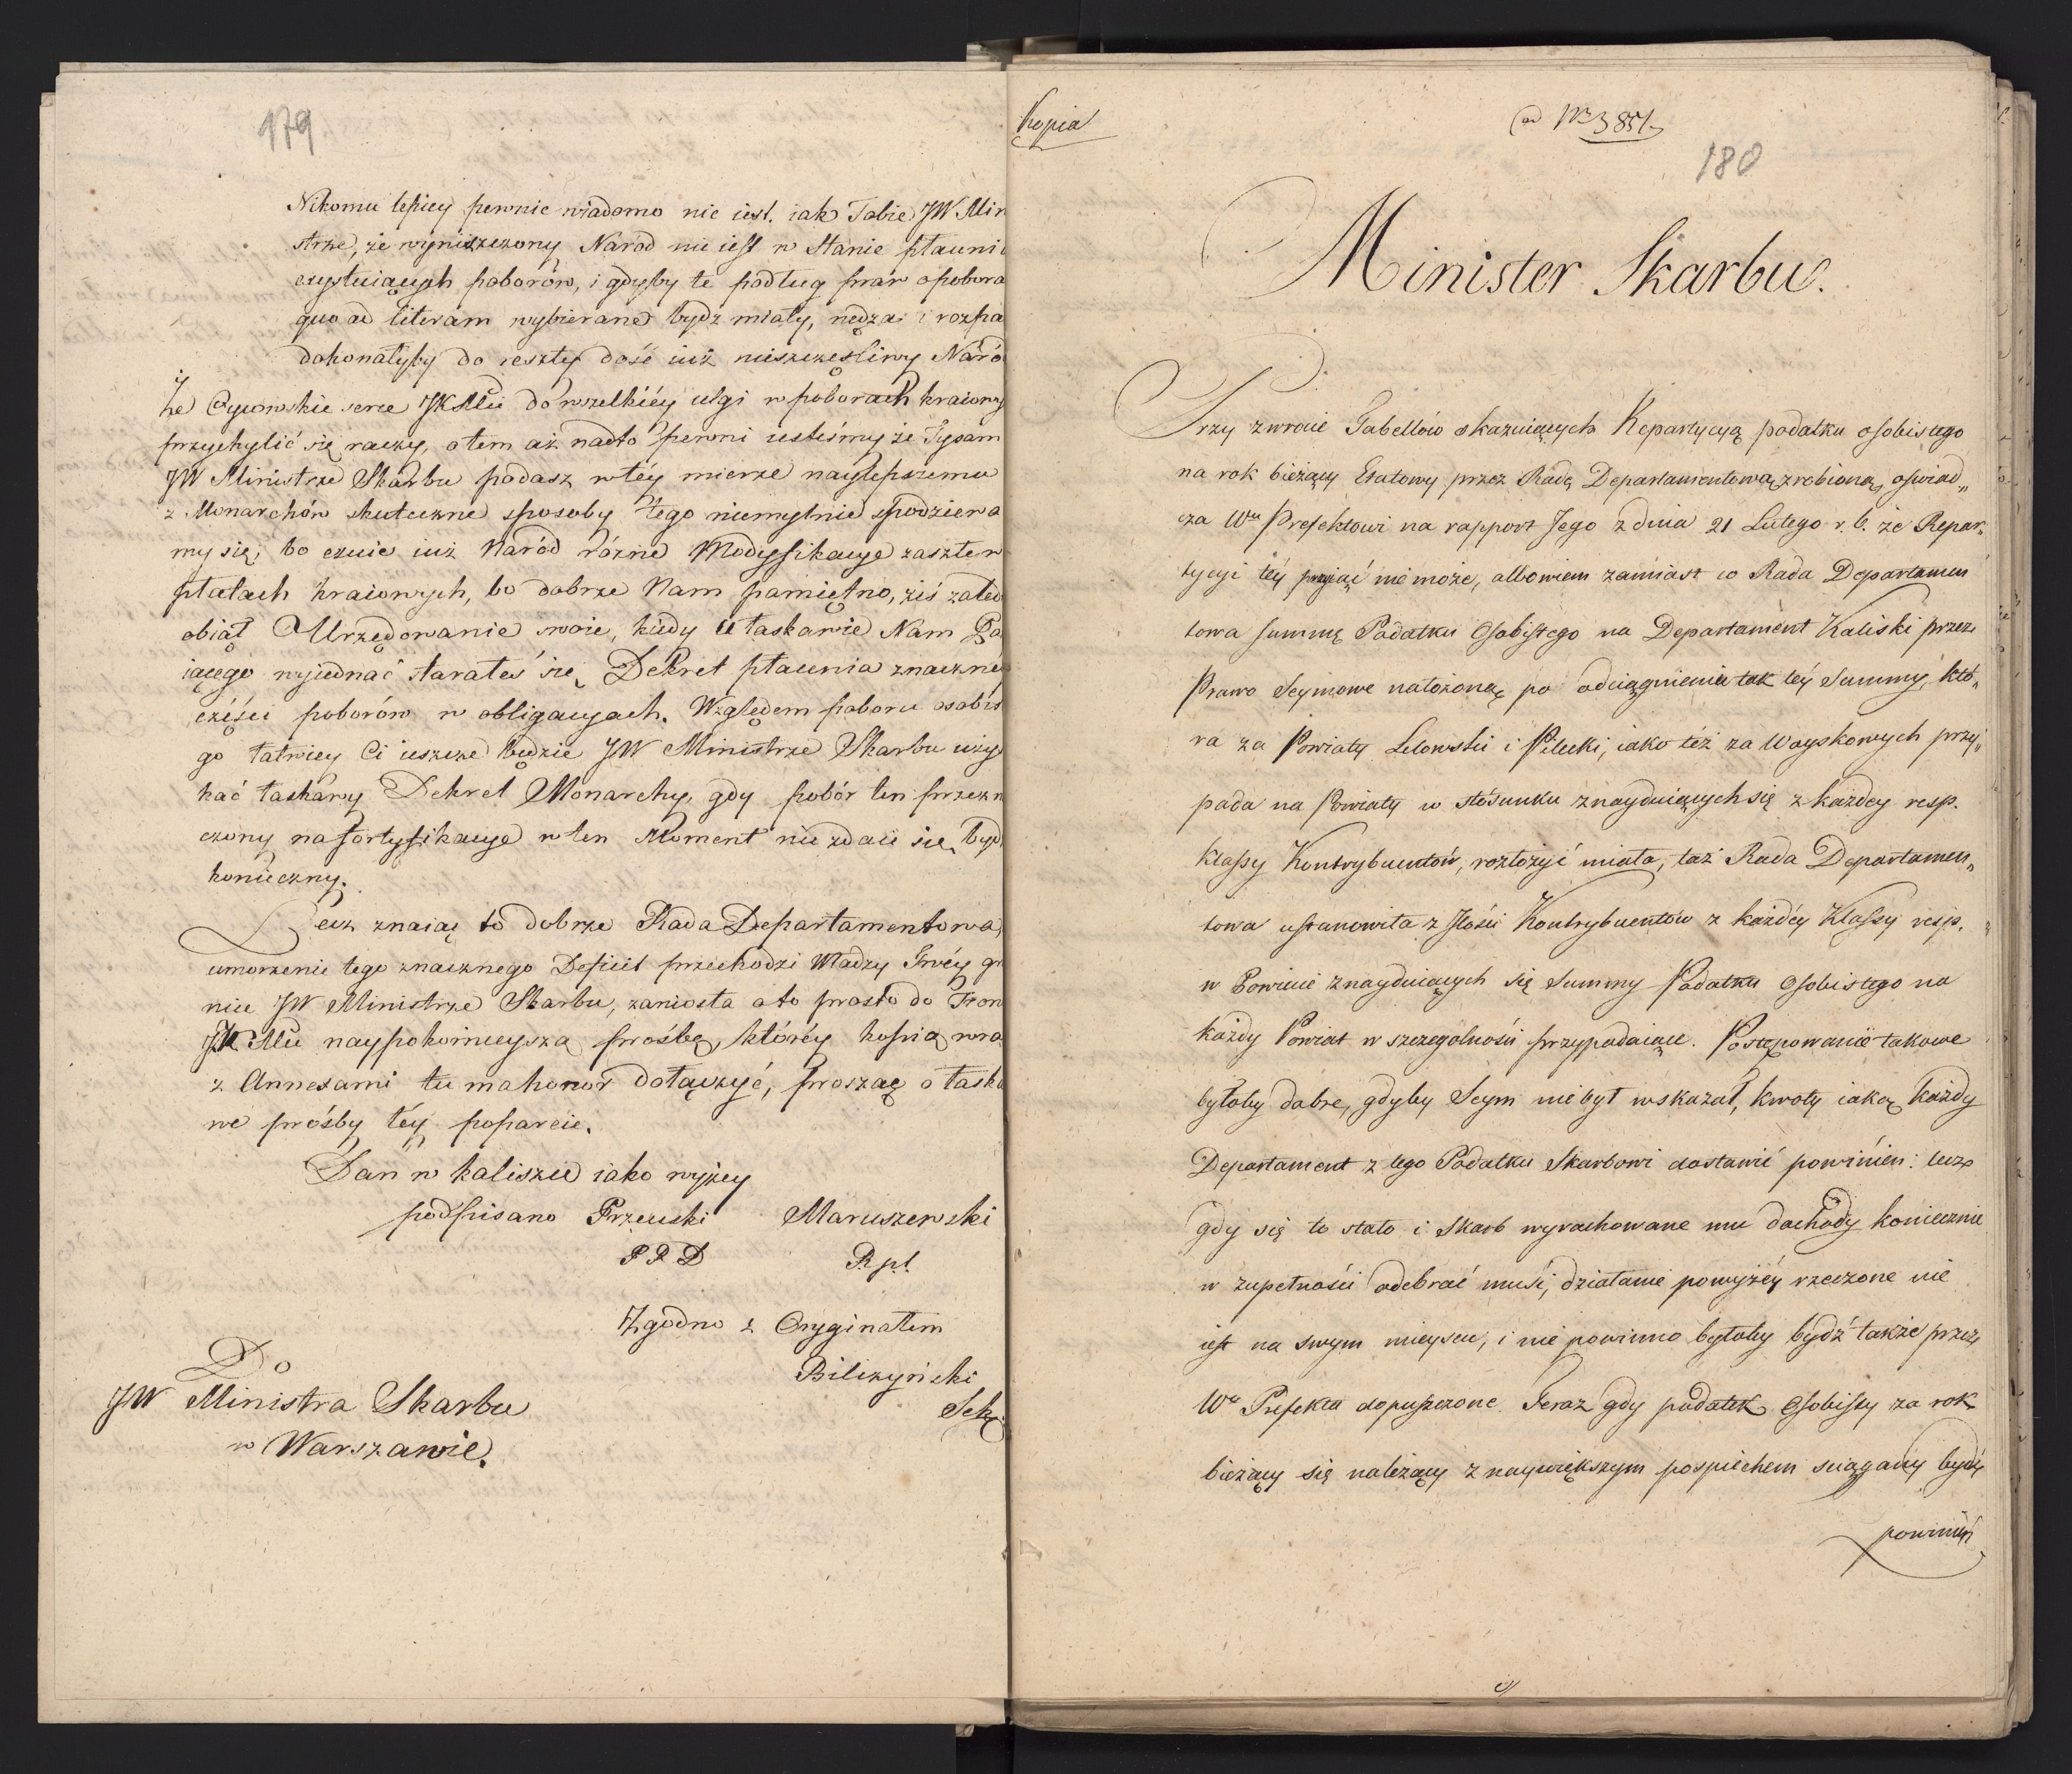 179
Nikomu lepiey pewnie wiadomo nie iest. iak Tobie JW Min
strze, że wyniszczony Naród nie iest w Stanie płaceni
exystuiących poborów, i gdyby te podług praw o pobora
quo ad literam wybierane bydź miały, nędza i rozpa
dokonałyby do reszty dość iuż nieszczęśliwy Naró
Że Oycowskie serce JKMci do wszelkiéy ulgi w poborach kraiowy
przychylić się raczy, o tem aż nadto pewni iesteśmy że Ty sam
JW Ministrze Skarbu podasz w téy mierze naylepszemu
z Monarchów skuteczne sposoby tego niemylnie spodziewa
my się, bo czuie iuż Naród różne Modyfikacye zaszłe w
płatach kraiowych, bo dobrze Nam pamiętno, żiś zaled
obiął Urzędowanie swoie, kiedy łaskawie Nam Pa
iącego wyiednać starałeś się Dekret płacenia znaczné
części poborów w obligacyach. Względem poboru osobis
go łatwiey Ci ieszcze będzie JW Ministrze Skarbu uzys
kać łaskawy Dekret Monarchy, gdy pobór ten przezn
czony na fortyfikacye w ten Moment nie zdaie się bydź
konieczny.
Lecz znaiąc to dobrze Rada Departamentowa,
umorzenie tego znacznego Deficit przechodzi Władzy Twéy gr
nice JW Ministrze Skarbu, zaniosła o to prosto do Tron
JKMci naypokornieysza prośbę, któréy kopią wra
z Annexami tu ma honor dołączyć, prosząc o łaska
we prośby téy poparcie.
Dan w Kaliszu iako wyżey
podpisano Przeuski Maruszewski
P R D R pł.
Zgodno z Oryginałem
Bilczyński
Sekr
Do
JW Ministra Skarbu
w Warszawie.
Kopia
ad Nr 3851
180
Minister Skarbu.
Przy zwrocie Tabellów okazuiących Repartycyą podatku osobistego
na rok bieżący Etatowy przez Radę Departamentową zrobioną, oświad„
cza Wu Prefektowi na rapport Jego z dnia 21 Lutego r. b. że Repar„
tycyi téy przyiąć nie może, albowiem zamiast co Rada Departamen
towa summę Podatku Osobistego na Departament Kaliski przez
Prawo Seymowe nałożoną, po odciągnieniu tak téy Summy, któ„
ra za Powiaty Lelowski i Pilecki, iako też za Woyskowych przy„
pada na Powiaty w stósunku znayduiących się z każdey resp.
Klassy Kontrybuentów, rozłożyć miała, taż Rada Departamen„
towa ustanowiła z Ilości Kontrybuentów z każdéy Klassy resp.
w Powiecie znayduiących się Summy Podatku Osobistego na
każdy Powiat w szczegolności przypadaiące. Postępowanie takowe
byłoby dobre, gdyby Seym nie był wskazał, kwoty iaką każdy
Departament z tego Podatku Skarbowi dostawić powinien: lecz
gdy się to stało i Skarb wyrachowane mu dochody koniecznie
w zupełności odebrać musi, działanie powyżéy rzeczone nie
iest na swym mieyscu, i nie powinno byłoby bydź także przez
Wo Prefekta dopuszczone. Teraz gdy podatek Osobisty za rok
bieżący się należący z naywiększym pospiechem sciągany bydź
powinien